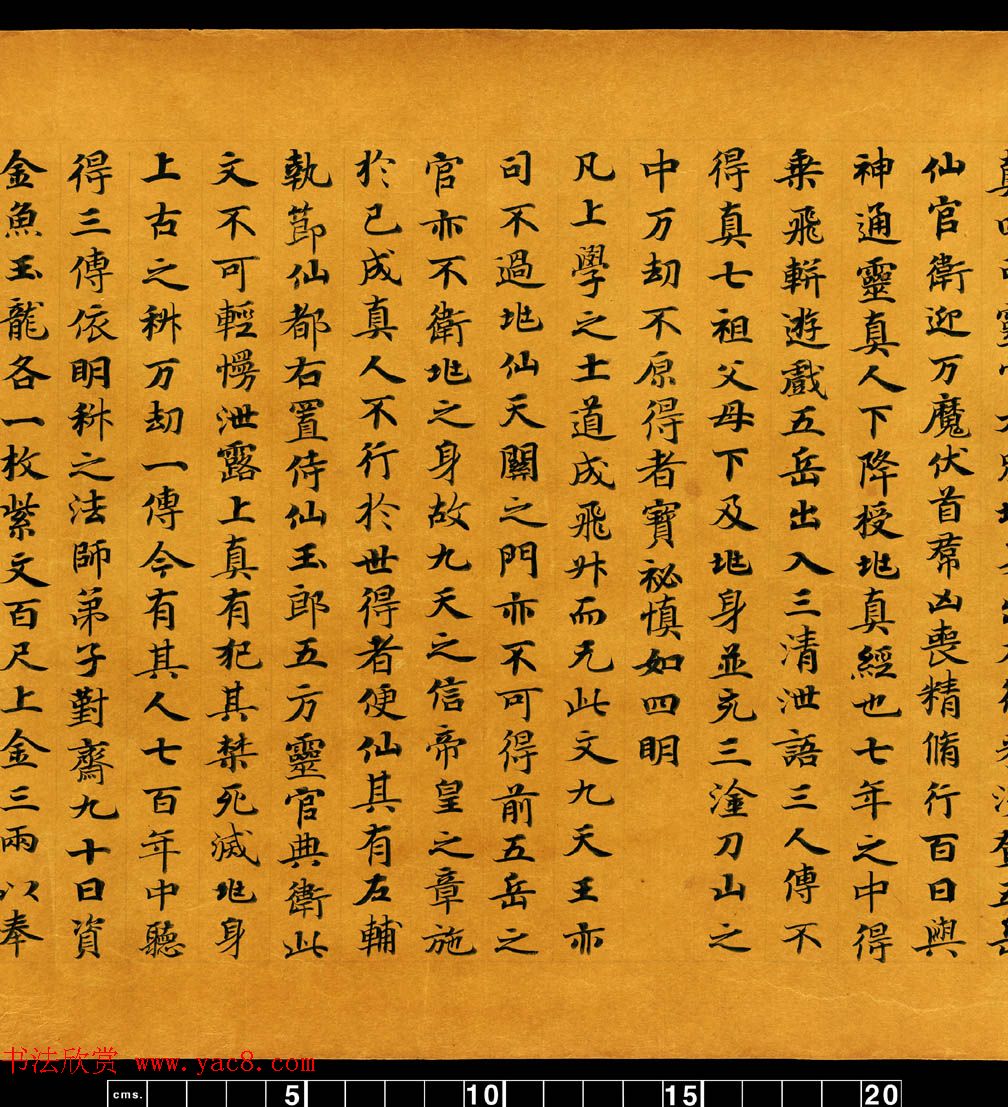 仙官衛迎万魔伏首群凶喪精脩行百日與
神通靈真人下降授兆真經也七年之中得
乘飛軿遊戲五岳出入三清泄語三人傳不
得真七祖父母下及兆身並充三塗刀山之
中万劫不原得者寶祕慎如四明
凡上學之士道成飛升而无此文九天王亦
司不過兆仙天關之門亦不可得前五岳之
官亦不衛兆之身故九天之信帝皇之章施
於已成真人不行於世得者便仙其有左輔
執節仙都右置侍仙玉郎五方靈官典衛此
文不可輕慢泄露上真有犯其禁死滅兆身
上古之科万劫一傳今有其人七百年中聽
得三傳依明科之法師弟子對齋九十日資
金魚玉龍各一枚紫文百尺上金三兩以奉
书法欣赏 www.yac8.com
cms. 5 10 15 20